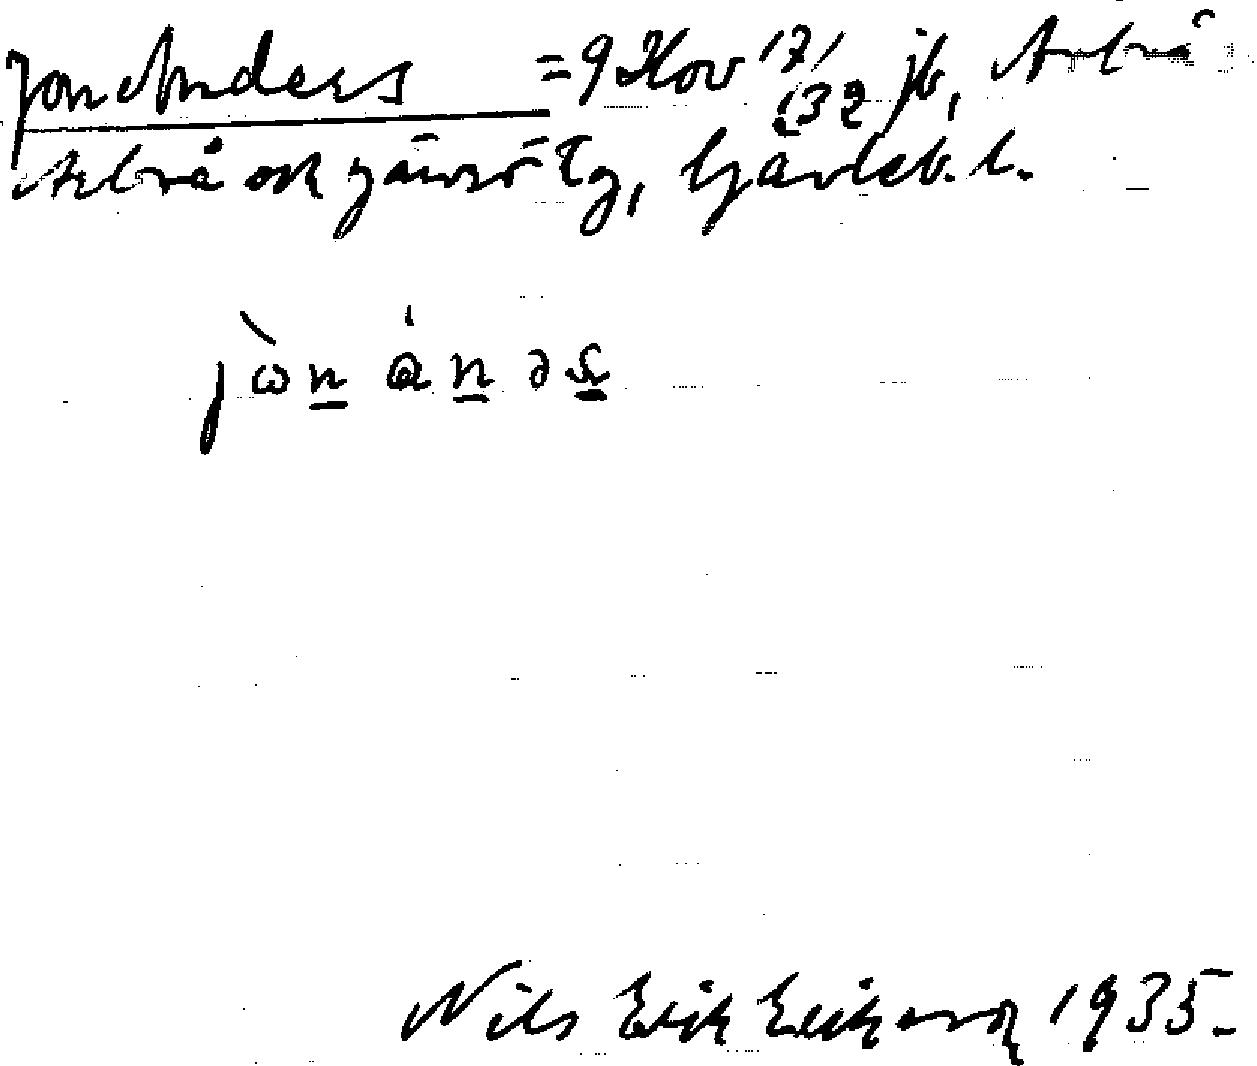 Jon Anders = 9 Kov 17/32 jb, Arbrå
Arbrå och Järvsö tg, Gävleb. l.
jòn án ə s
Nils Erik Eriksson 1935.